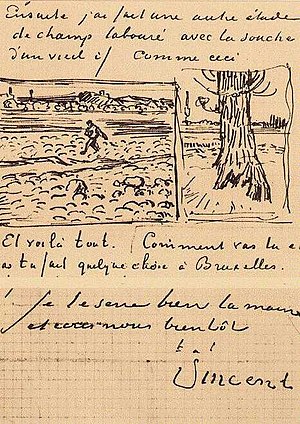 Ensuite j'ai fait une autre étude
de champs labouré avec la souche
d'un vieil if comme ceci
Et voilà tout. Comment vas tu
as tu fait quelque chose à Bruxelles.
Je te serre bien la main
et nous bientôt
t. à t.
Vincent